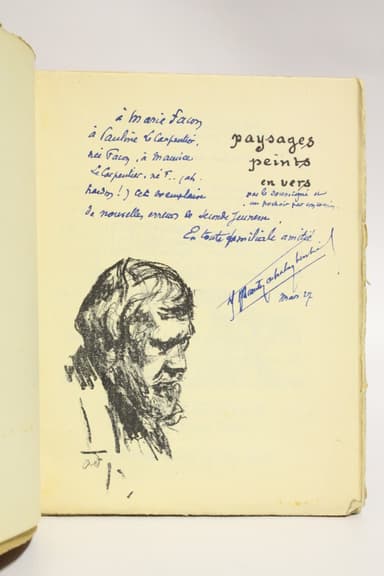 à Marie Facon
à Pauline Le Carpentier,
née Facon, à Maurice
Le Carpentier, né F.. (ah
pardon!) cet exemplaire
de nouvelles erreurs de seconde jeunesse.
En toute familiale amitié
paysages
peints
en vers
par le soussigné et
un
Mars 27